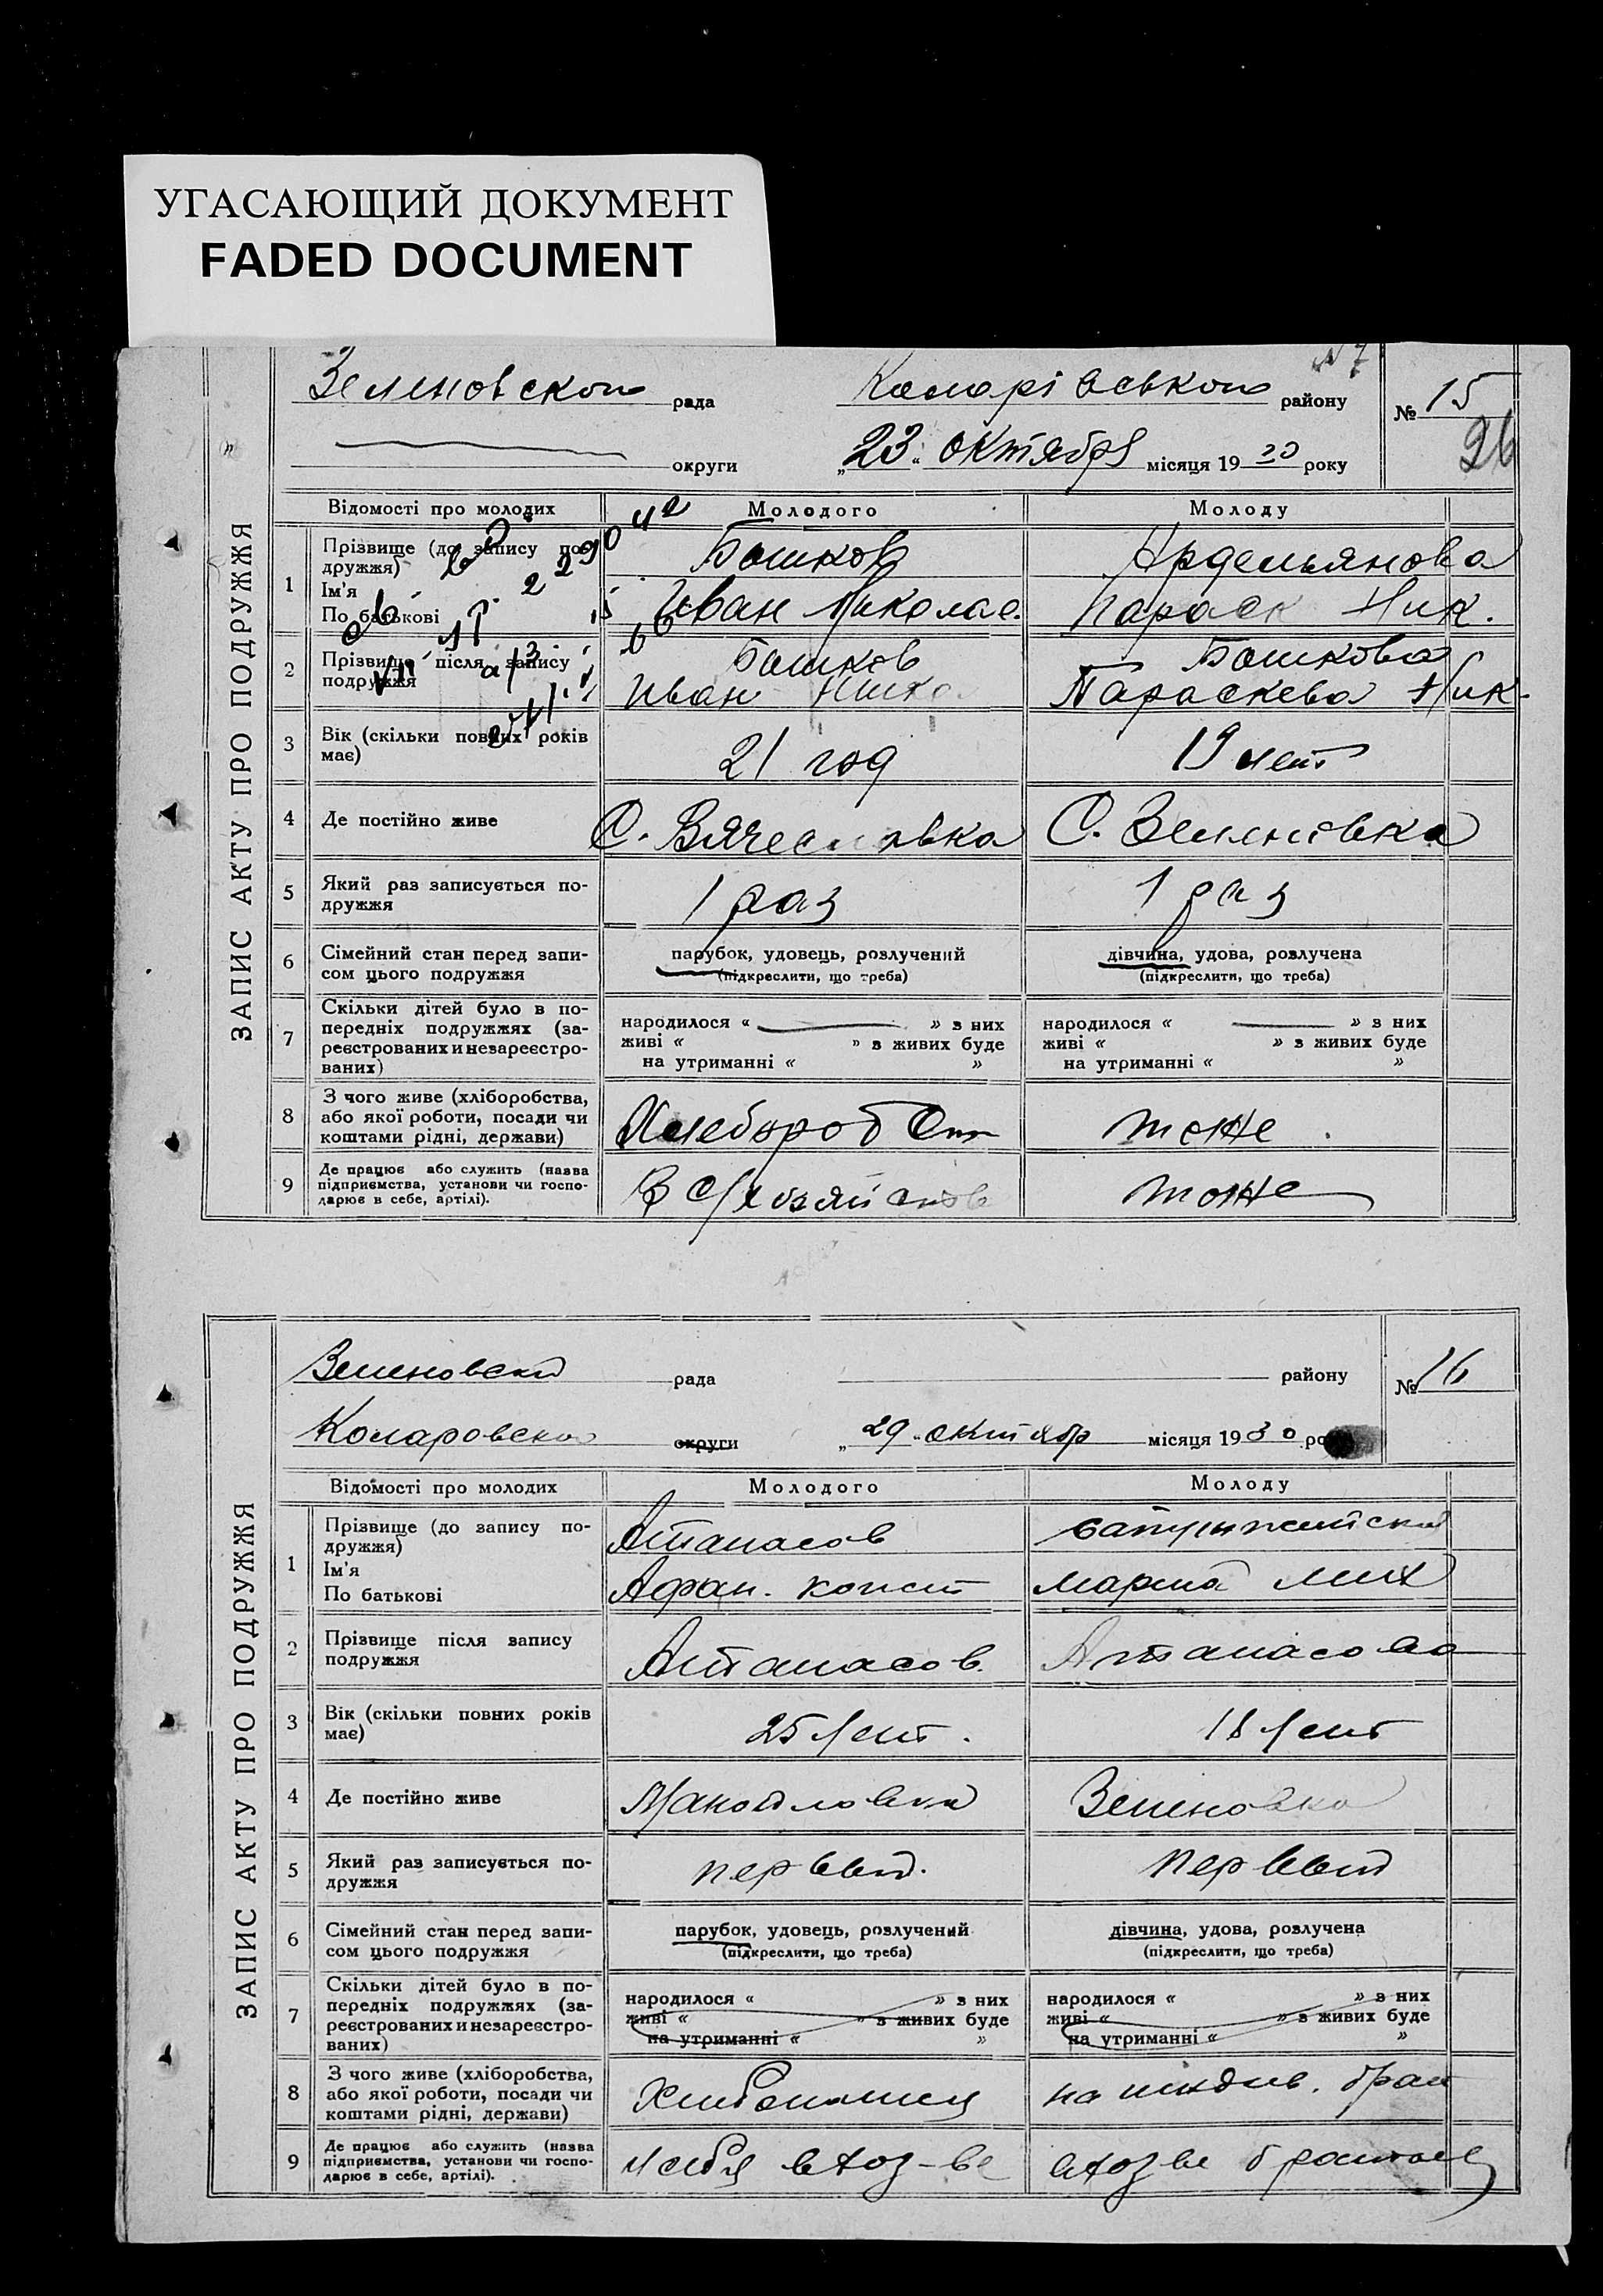 УГАСАЮЩИЙ ДОКУМЕНТ
FADED DOCUMENT
ЗАПИС АКТУ ПРО ПОДРУЖЖЯ
№ 7
Зеленовской рада
району
№ 15
26
округи
„23“ октября місяця 19 30 року
Відомості про молодих
Молодого
Молоду
1
Прізвище (до запису по-
дружжя)
Ім'я
По батькові
Башков
Ардельянова
Иван Николае.
Параск Ник.
2
Прізвище після запису
подружжя
Башков
Башкова
Иван Нико
Параскева Ник.
3
Вік (скільки повних років
має)
21 год
19 лет
4
Де постійно живе
С. Вячеславка
С. Зеленовка
5
Який раз записується по-
дружжя
1 раз
1 раз
6
Сімейний стан перед запи-
сом цього подружжя
парубок, удовець, розлучений
(підкреслити, що треба)
дівчина, удова, розлучена
(підкреслити, що треба)
7
Скільки дітей було в по-
передніх подружжях (за-
реєстрованих и незареєстро-
ваних)
народилося « » з них
живі « » з живих буде
на утриманні « »
народилося « » з них
живі « » з живих буде
на утриманні « »
8
З чого живе (хліборобства,
або якої роботи, посади чи
коштами рідні, держави)
тоже
9
Де працює або служить (назва
підприємства, установи чи госпо-
дарює в себе, артілі).
тоже
ЗАПИС АКТУ ПРО ПОДРУЖЖЯ
Зеленовской рада
району
№ 16
Комаровского округи
„29“ октябр місяця 1930
Відомості про молодих
Молодого
Молоду
1
Прізвище (до запису по-
дружжя)
Ім'я
По батькові
Атанасов
Афан. конст
мария мих
2
Прізвище після запису
подружжя
Атанасов.
Атанасова
3
Вік (скільки повних років
має)
25 лет.
18 лет
4
Де постійно живе
Манойловка
Зеленовка
5
Який раз записується по-
дружжя
первый.
первый
6
Сімейний стан перед запи-
сом цього подружжя
парубок, удовець, розлучений
(підкреслити, що треба)
дівчина, удова, розлучена
(підкреслити, що треба)
7
Скільки дітей було в по-
передніх подружжях (за-
реєстрованих и незареєстро-
ваних)
народилося « » з них
живі « » з живих буде
на утриманні « »
народилося « » з них
живі « » з живих буде
на утриманні « »
8
З чого живе (хліборобства,
або якої роботи, посади чи
коштами рідні, держави)
на иждив. брат
9
Де працює або служить (назва
підприємства, установи чи госпо-
дарює в себе, артілі).